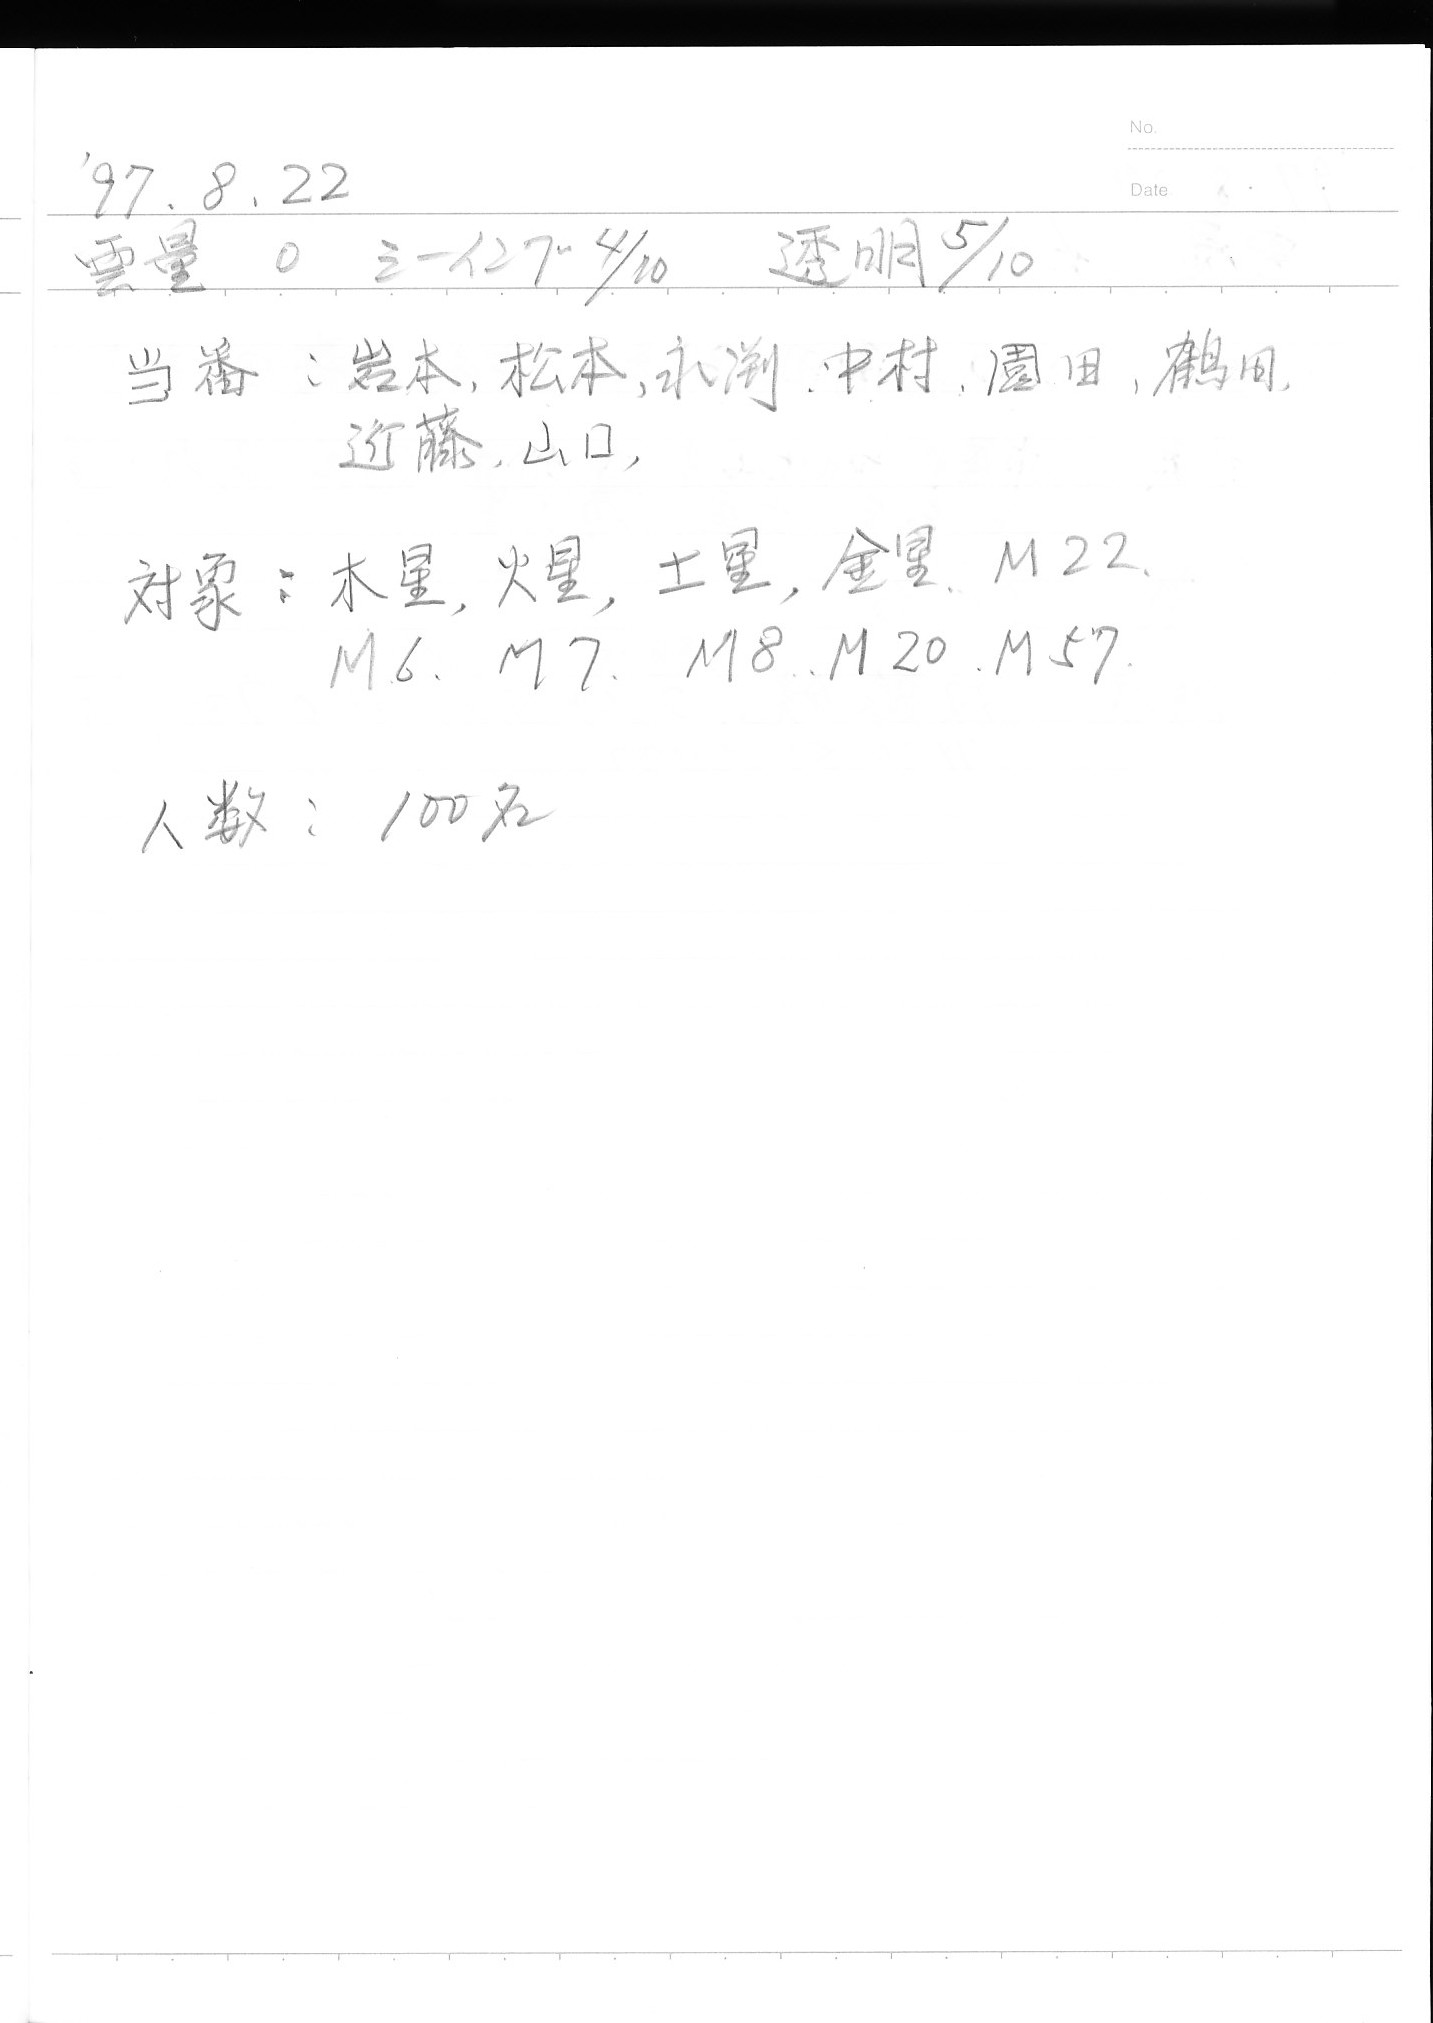 No.
Date
'97.8.22
雲量 0 シーイング 4/10 透明 5/10
当番:岩本,松本,永渕.中村.園田,鶴田.
近藤.山口,
対象:木星,火星,土星,金星.M22.
M6.M7.M8.M20.M57.
人数:100名